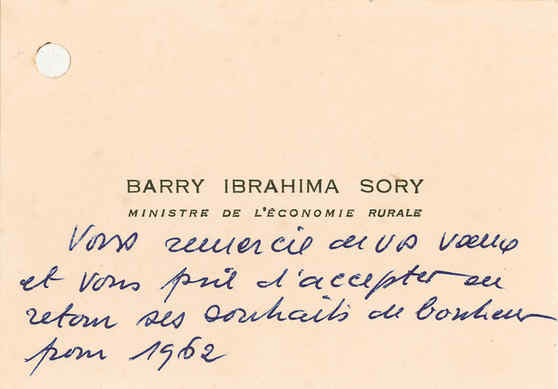 BARRY IBRAHIMA SORY
MINISTRE DE L'ÉCONOMIE RURALE
Vous remercie de vos vœux
et vous prie d'accepter en
retour ses souhaits de bonheur
pour 1962